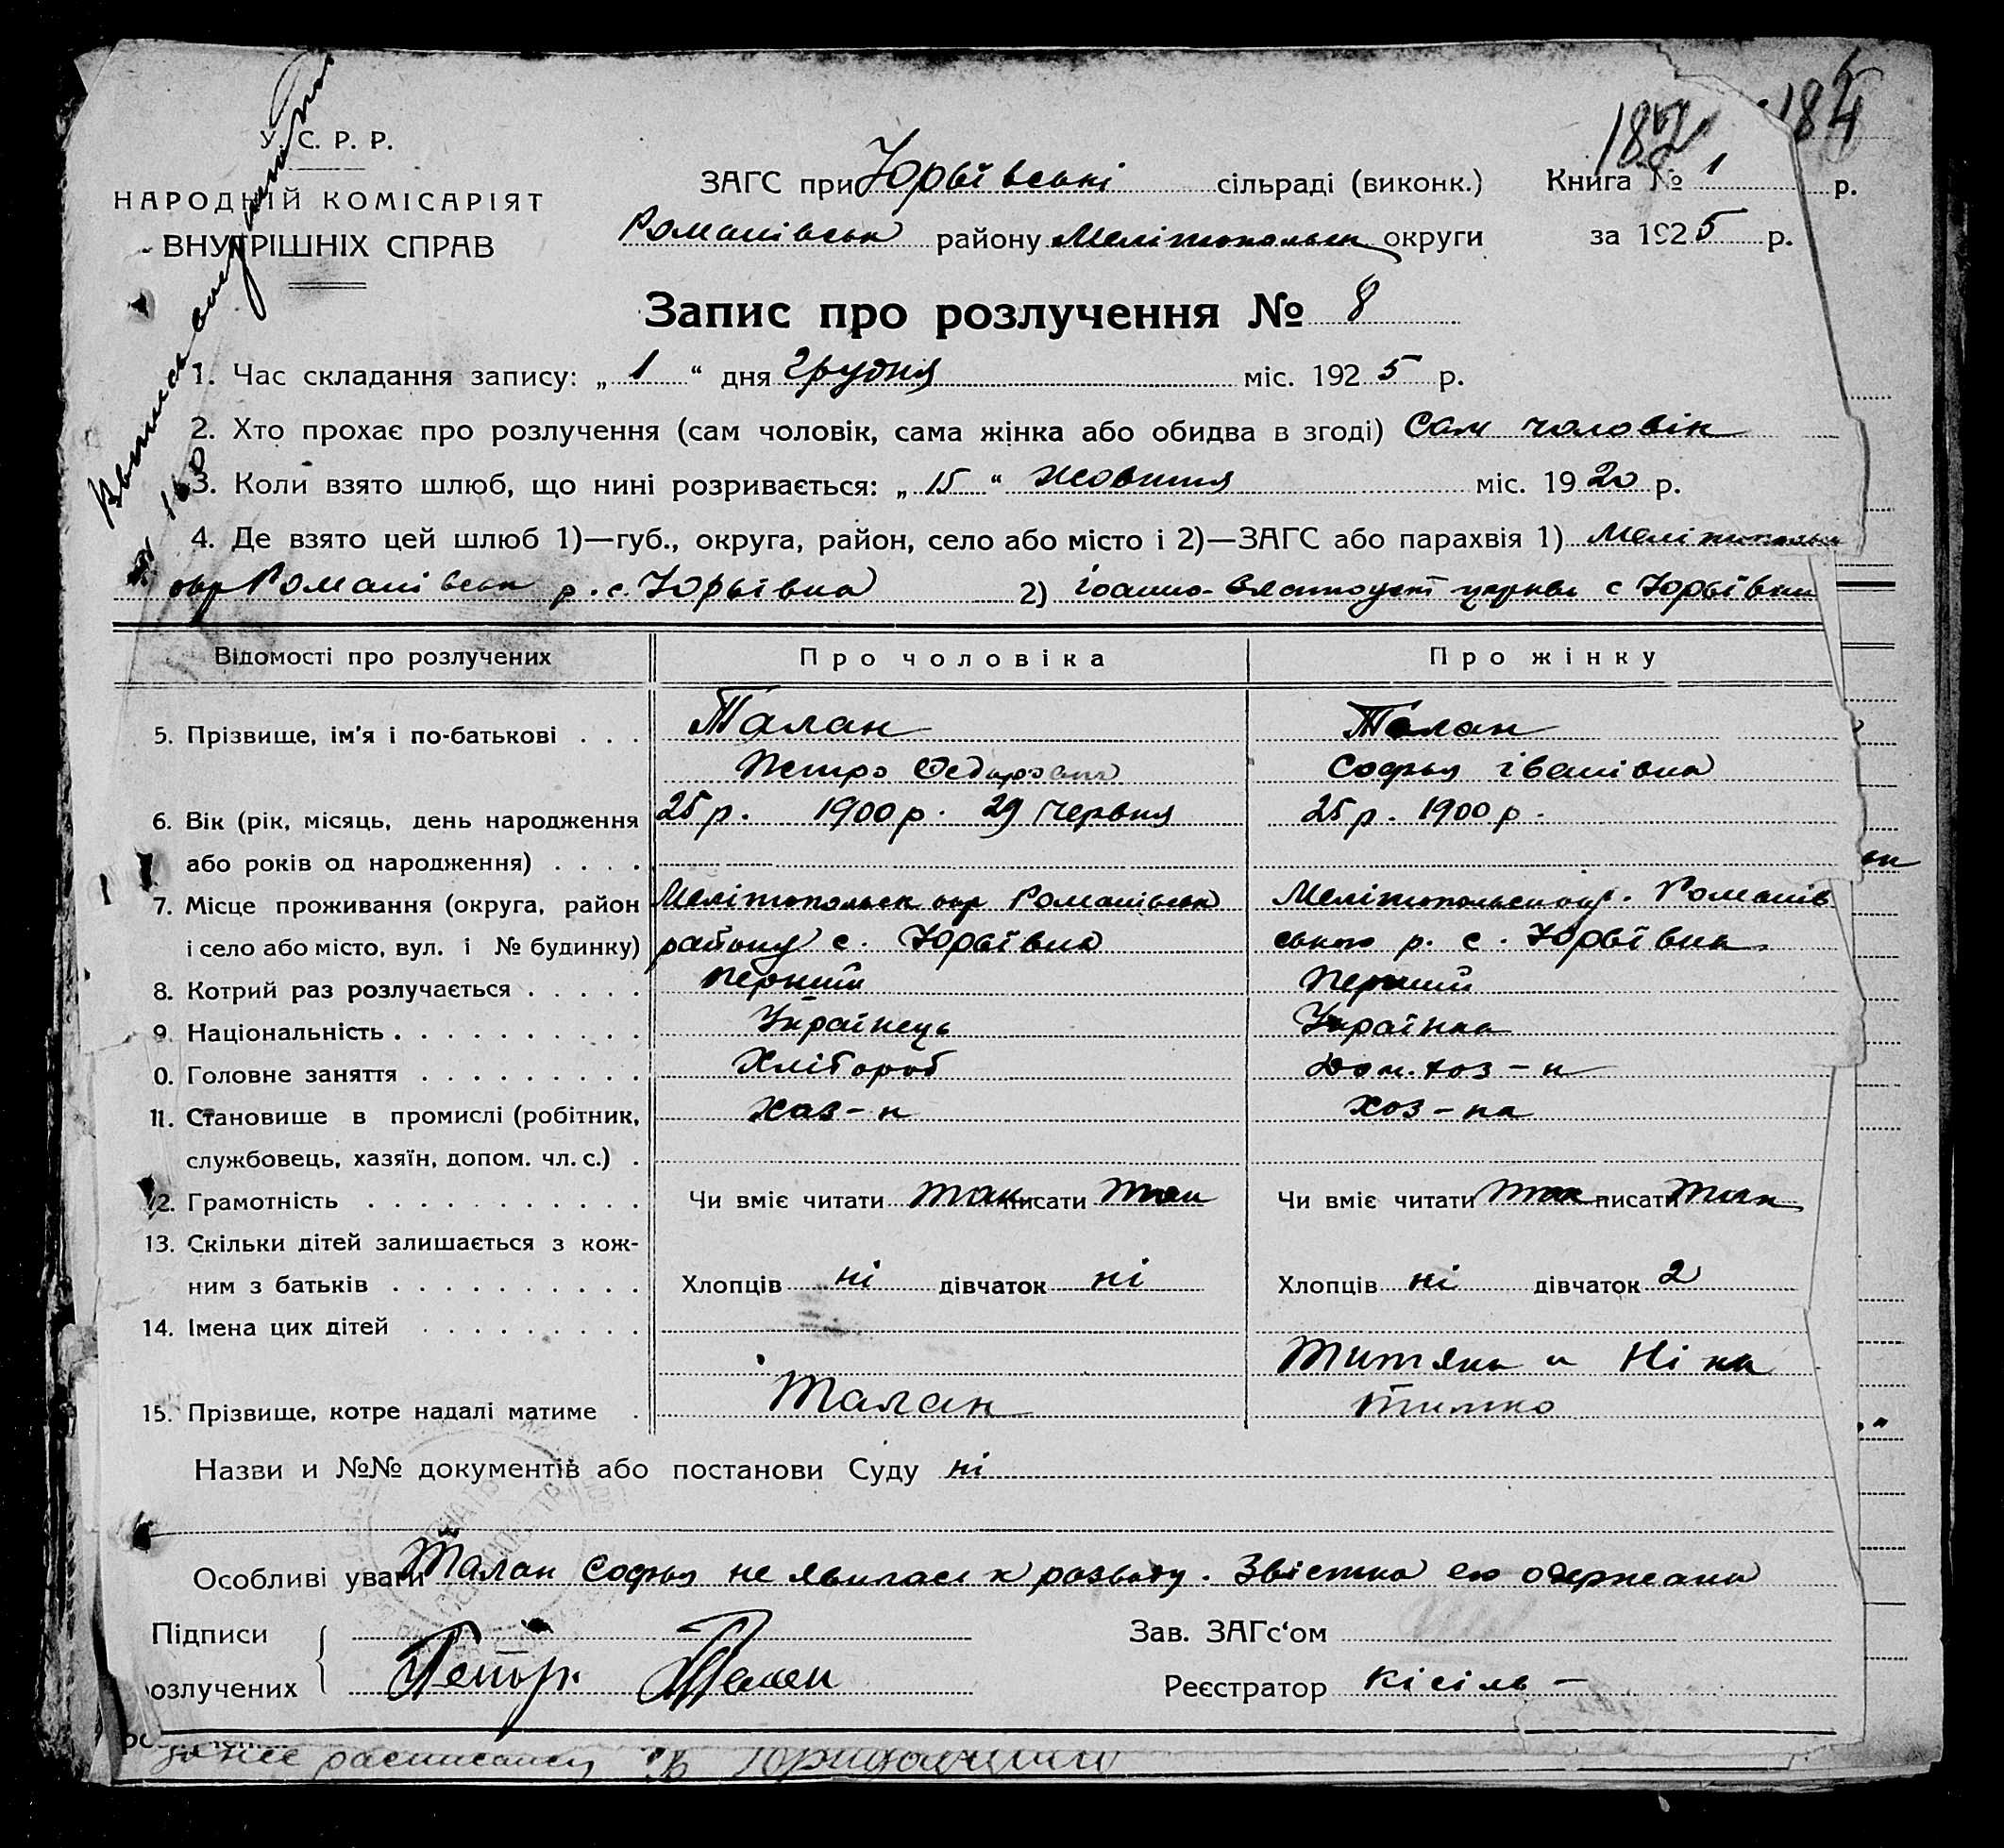 182 184
У. С. Р. Р.
НАРОДНІЙ КОМІСАРІЯТ
ВНУТРІШНІХ СПРАВ
ЗАГС при Юрьївські сільраді (виконк.) Книга № 1 р.
Романівськ району Мелітопольск округи за 1925 р.
Запис про розлучення № 8
1. Час складання запису: „ 1 “ дня Грудня міс. 1925 р.
2. Хто прохає про розлучення (сам чоловік, сама жінка або обидва в згоді) Сам чоловік
3. Коли взято шлюб, що нині розривається: „ 15 “ жовтня міс. 1920 р.
4. Де взято цей шлюб 1)—губ., округа, район, село або місто і 2)—ЗАГС або парахвія 1) Мелітопольск
окр Романівськ р. с. Юрьївка 2) Іоанно-Златоуст церква с Юрьївки
Відомості про розлучених Про чоловіка Про жінку
5. Прізвище, ім'я і по-батькові . . . Талан Талан
Петро Федорович Софья Іванівна
6. Вік (рік, місяць, день народження 25 р. 1900 р. 29 червня 25 р. 1900 р.
або років од народження) . . . .
7. Місце проживання (округа, район Мелітопольск окр Романівськ Мелітопольск окр. Романів
і село або місто, вул. і № будинку) району с. Юрьївка ського р. с. Юрьївка
8. Котрий раз розлучається . . . . . Перший Перший
9. Національність . . . . . . . . . . Українець Українка
0. Головне заняття . . . . . . . . . Хлібороб Дом. хоз-н
11. Становище в промислі (робітник, Хаз-н Хоз-ка
службовець, хазяїн, допом. чл. с.) .
12. Грамотність . . . . . . . . . . . Чи вміє читати так писати так Чи вміє читати так писати так
13. Скільки дітей залишається з кож-
ним з батьків . . . . . . . . . . Хлопців ні дівчаток ні Хлопців ні дівчаток 2
14. Імена цих дітей . . . . . . . . .
Титяна и Ніна
15. Прізвище, котре надалі матиме . Талан Титко
Назви и №№ документів або постанови Суду ні
Особливі уваги Талан Софья не явилась к разводу. Звістка ею одержана
Підписи Зав. ЗАГс‘ом
озлучених Петр. Талан Реєстратор Кісіль –
расписался